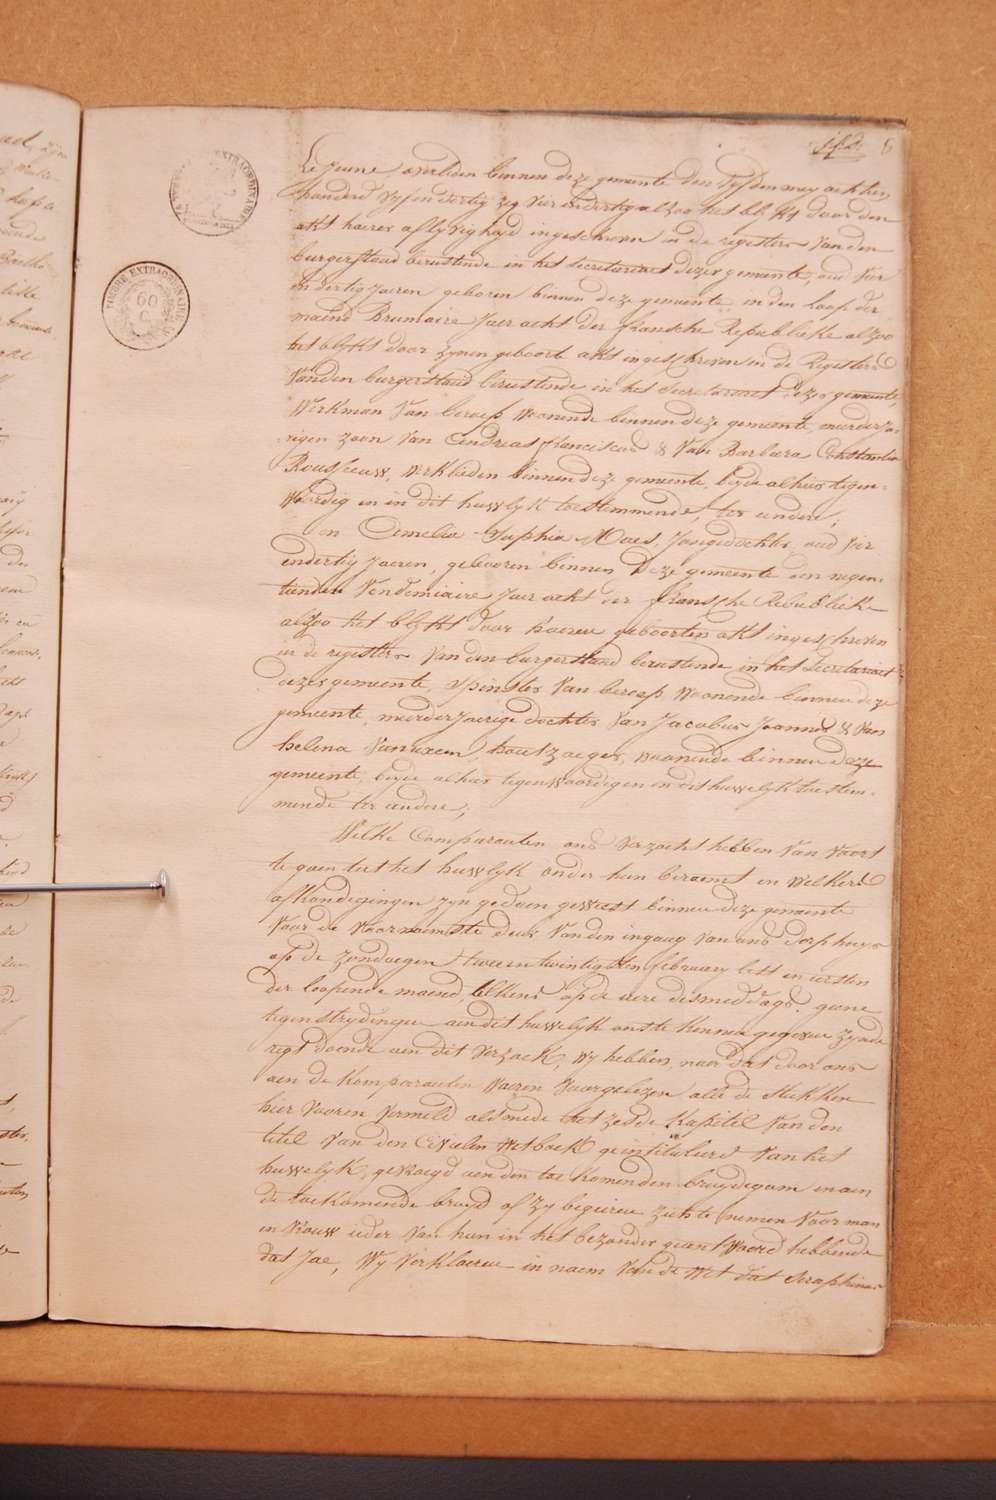 8
EXTRAORDINAIRE
TIMBRE EXTRAORDINAIRE
60
C
Le Jeune overleden binnen deze gemeente den Vyfden mey achtien
honderd vyf en dertig zeg vier en dertig alzoo het blykt door den
akt haeren aflyvigheyd ingeschreven in de registers van den
burgerstand berustende in het secretariaet dezer gemeente, oud vier
en dertig Jaeren geboren binnen deze gemeente in den loop der
maend Brumaire Jaer acht der fransche Republieke alzoo
het blykt door zynen geboort akt ingeschreven in de Registers
van den burgerstand berustende in het secretariaet dezer gemeente,
Werkman van beroep woonende binnen deze gemeente, meerderja-
rigen zoon van Andreas franciscus & van Barbara Constantia
Rousseeuw, werklieden binnen deze gemeente, beyde alhier tegen-
woordig en in dit huwelyk toestemmende, ter eendere;
En Amelia Sophia Maes, Jongedochter, oud vier
en dertig Jaeren, gebooren binnen deze gemeente den negen-
tienden Vendemiaire Jaer acht der fransche Republieke
alzoo het blykt door haeren geboorten akt ingeschreven
in de registers van den burgerstand berustende in het secretariaet
dezer gemeente, spinster van beroep woonende binnen deze
gemeente, meerderjaerige dochter van Jacobus Joannes & van
helena Vanuxem, houtzaeger, woonende binnen deze
gemeente, beyde alhier tegenwoordig en in dit huwelyk toestem-
mende ter andere;
Welke Comparanten ons verzocht hebben van voort
te gaen tot het huwelyk onder hun beraemt en welkers
afkondigingen zyn gedaen geweest binnen deze gemeente
voor de voornaemste deur van den ingang van ons dorphuys
op de zondaegen tweeentwintigsten february lest en eersten
der loopende maend, telkens op de uere des middags. geene
tegenstrydingen aen dit huwelyk ons te kennen gegeven zynde
regt doende aen dit verzoek, wy hebben, naer dat door ons
aen de komparanten waeren voorgelezen alle de stukken
hier vooren vermeld alsmede het zesde kapitel van den
titel van den Civielen Wetboek geintituleerd van het
huwelyk, gevraegd aen den toekomenden bruydegom en aen
de toekomende bruyd of zy begeiren zich te nemen voor man
en vrouw ieder van hun in het bezonder geantwoord hebbende
dat Jae, Wy verklaeren in naem van de Wet dat Seraphinus